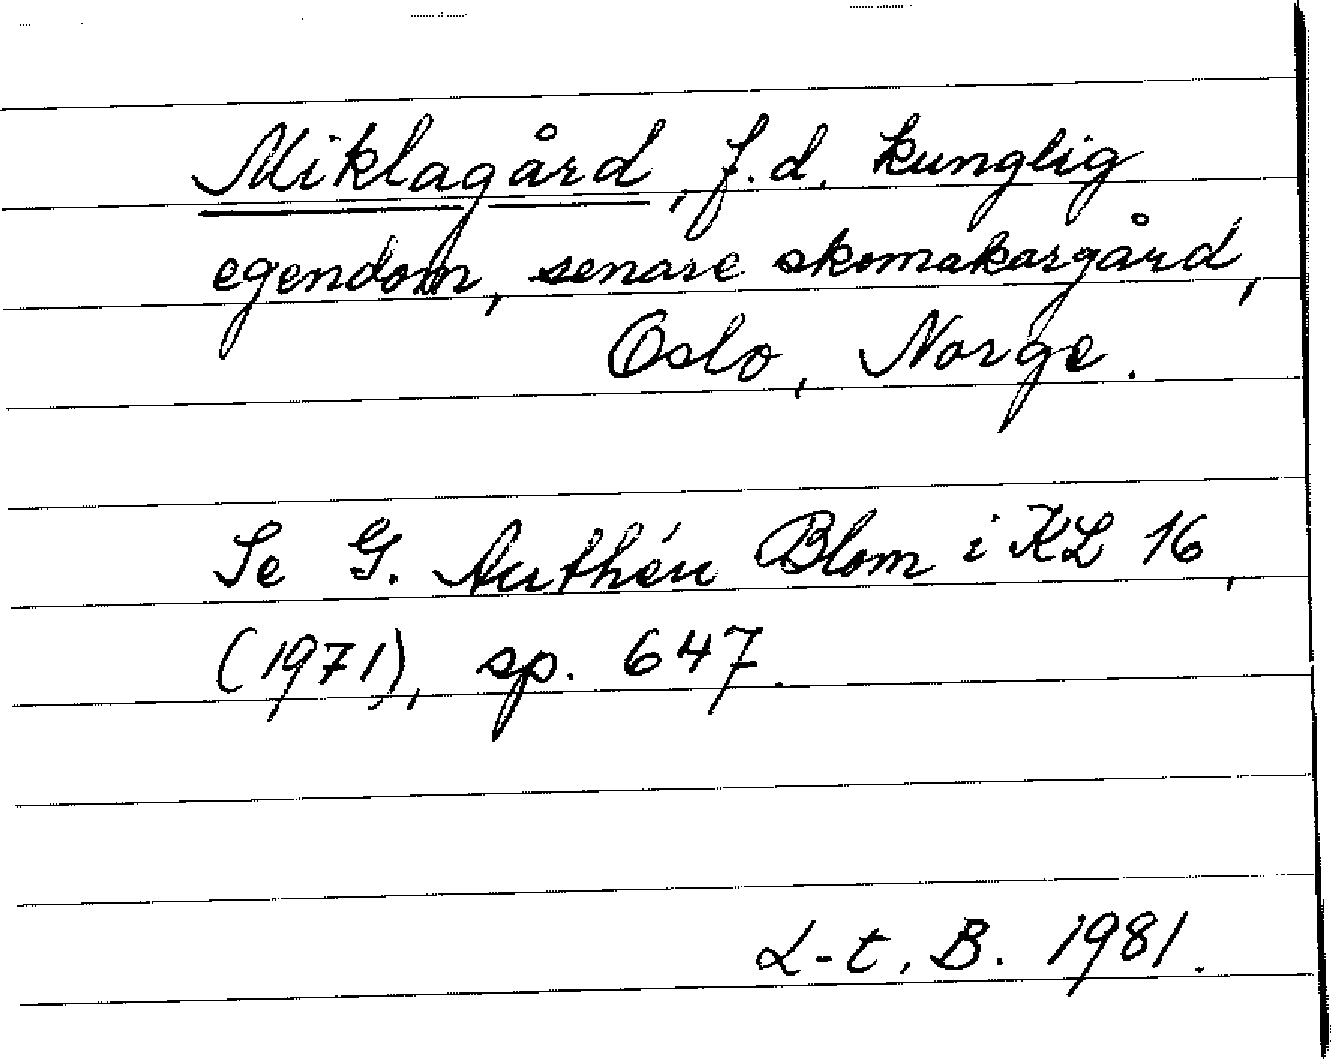 Miklagård, f.d. kunglig
egendom, senare skomakargård,
Oslo, Norge.
Se G. Authén Blom i KL 16,
(1971), sp. 647.
L-t. B. 1981.